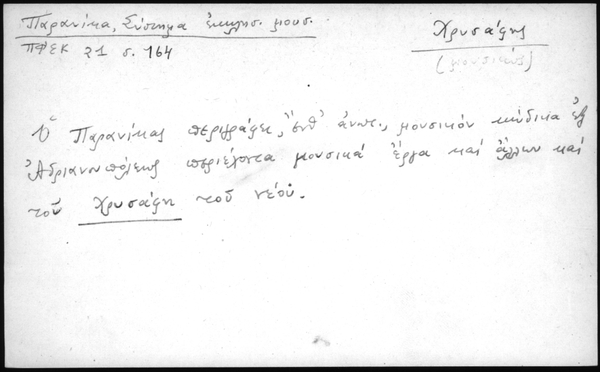 Παρανίκα, Σύστημα ἐκκλησ. μουσ.
ΠΦΣΚ 21 σ. 164
Χρυσάφης
(μουσικός)
Ὁ Παρανίκας περιγράφει, ἔνθ' ἀνωτ., μουσικὸν κώδικα ἐξ
Ἀδριανουπόλεως περιέχοντα μουσικά ἔργα καὶ ἄλλων καὶ
τοῦ Χρυσάφη τοῦ νέου.